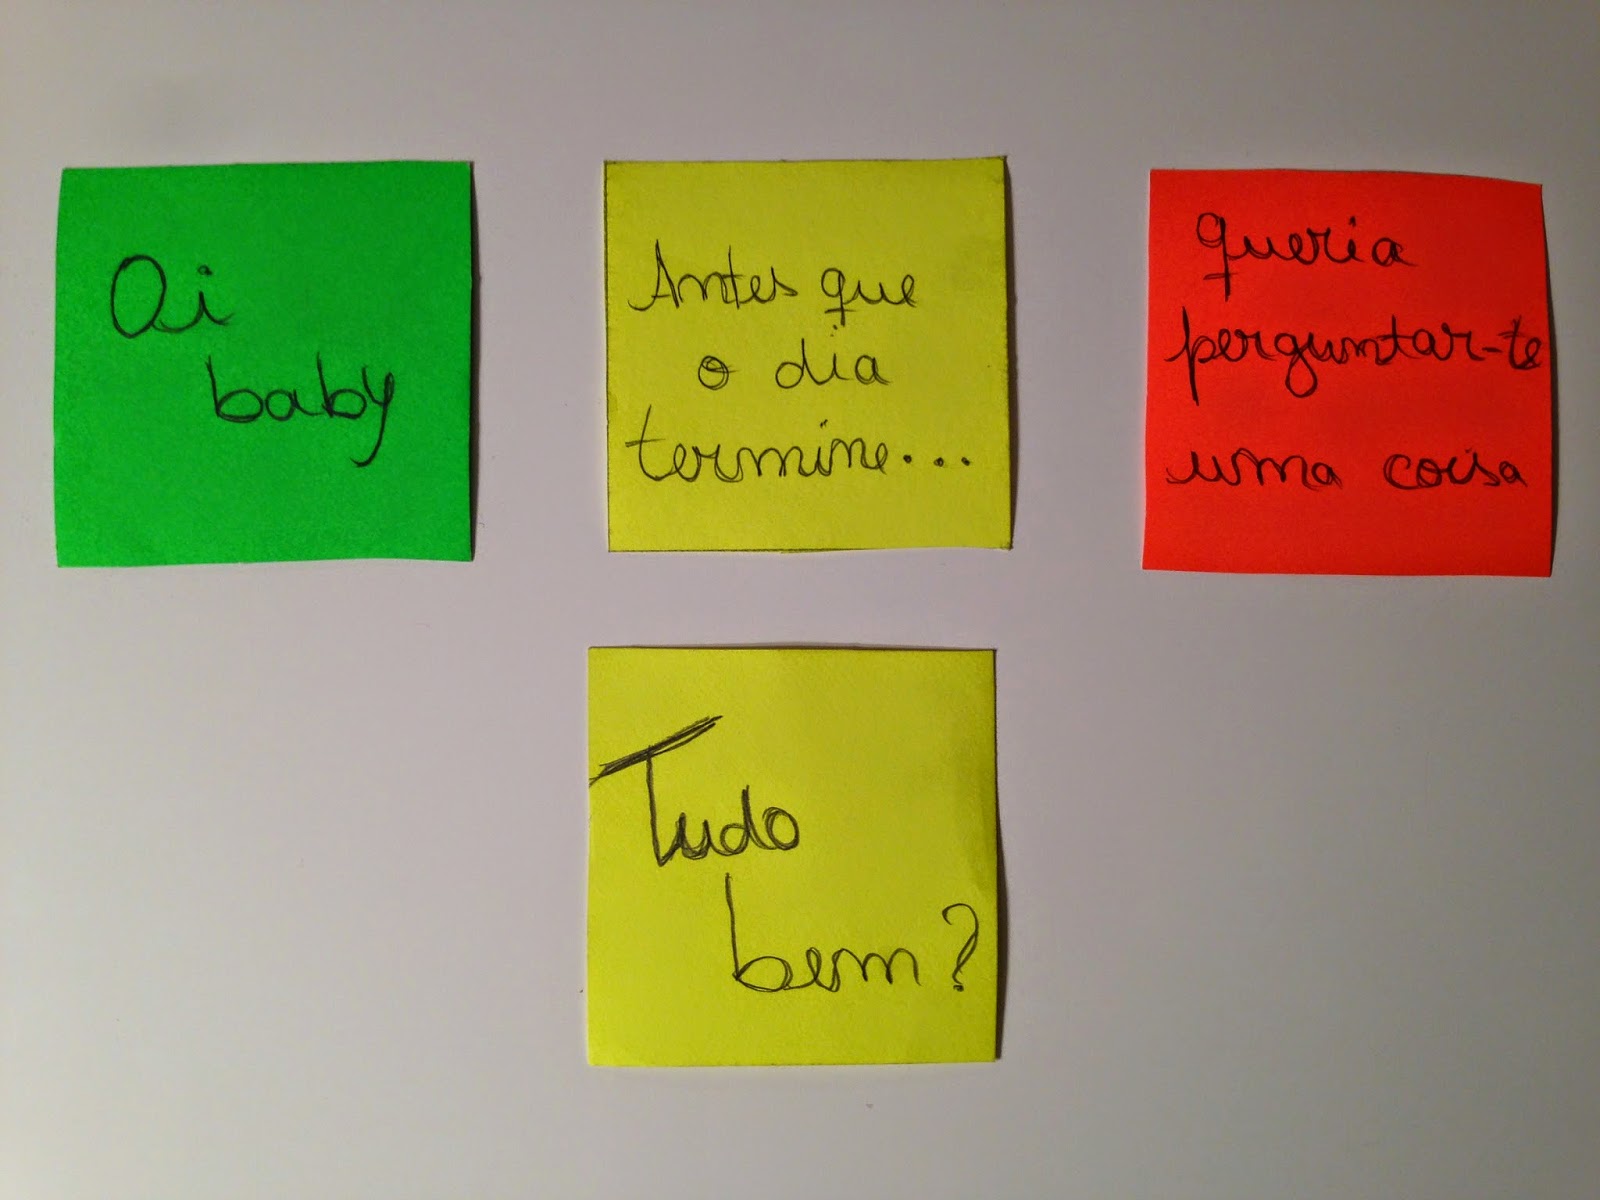 Oi
baby
Antes que
o dia
termine...
queria
perguntar-te
uma coisa
Tudo
bem?